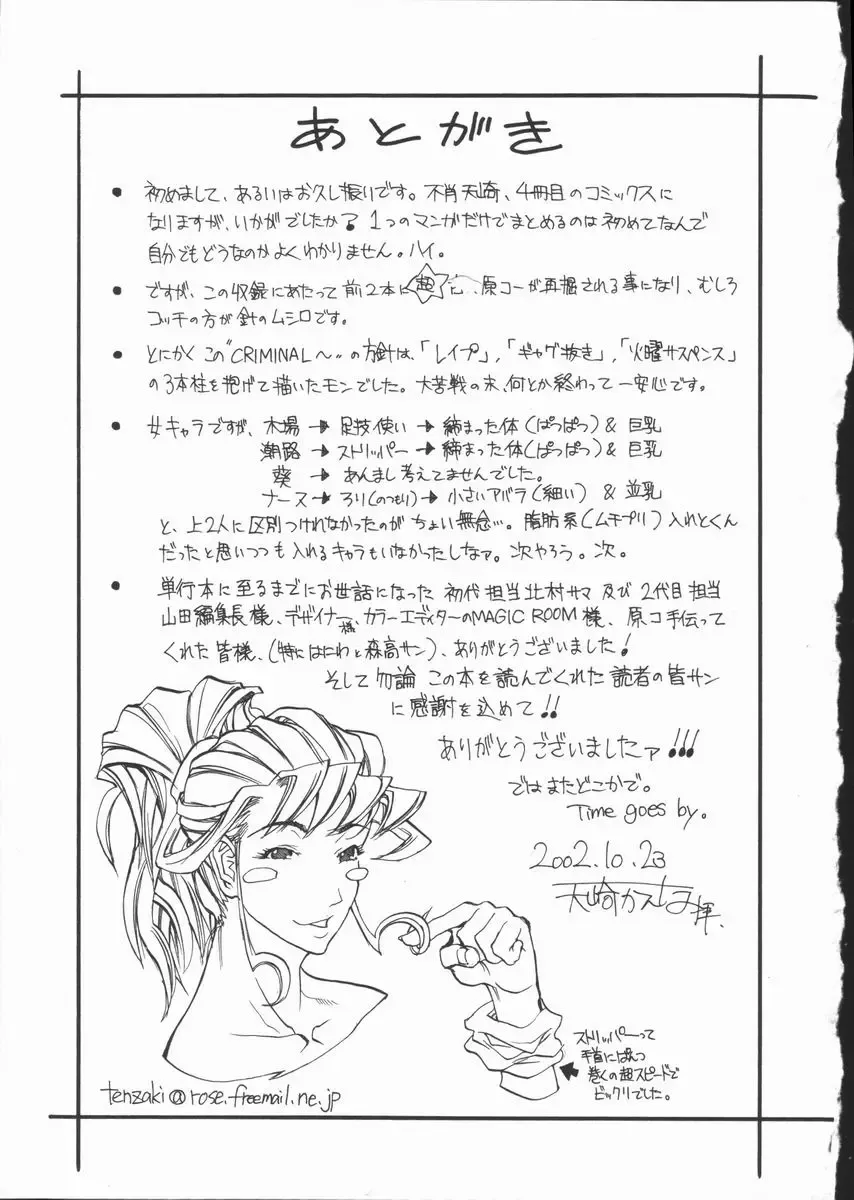 あとがき
● 初めまして、あるいはお久し振りです。不肖天崎、4冊目のコミックスに
なりますが、いかがでしたか? 1つのマンガだけでまとめるのは初めてなんで
自分でもどうなのかよくわかりません。ハイ。
● ですが、この収録にあたって前2本に 超 、原コーが再掘される事になり、むしろ
コッチの方が針のムシロです。
● とにかくこの"CRIMINAL〜"の方針は、「レイプ」,「ギャグ抜き」,「火曜サスペンス」
の3本柱を掲げて描いたモンでした。大苦戦の末、何とか終わって一安心です。
● 女キャラですが、木場→足技使い→締まった体(ぱっぱつ)& 巨乳
潮路→ストリッパー→締まった体(ぱっぱつ)& 巨乳
葵→あんまし考えてませんでした。
ナース→ろり(のつもり)→小さいアバラ(細い) & 並乳
と、上2人に区別つけれなかったのがちょい無念…。脂肪系(ムチプリ)入れとくん
だったと思いつつも入れるキャラもいなかったしなァ。次やろう。次。
● 単行本に至るまでにお世話になった 初代担当北村サマ 及び 2代目担当
山田編集長様、デザイナー様、カラーエディターのMAGIC ROOM様、原コ手伝って
くれた皆様、(特にはにわと森高サン)、ありがとうございました!
そして勿論 この本を読んでくれた 読者の皆サン
に感謝を込めて!!
ありがとうございましたァ!!!
ではまたどこかで。
Time goes by.
2002.10.23
天崎かんな 拝.
ストリッパーって
手首にぱんつ
巻くの超スピードで
ビックリでした。
tenzaki@rose.freemail.ne.jp